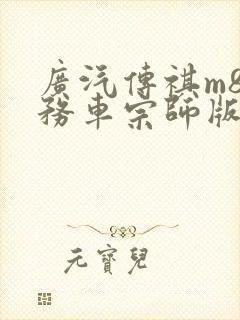 廣汽傳祺m8
務車宗師版
元寶兒